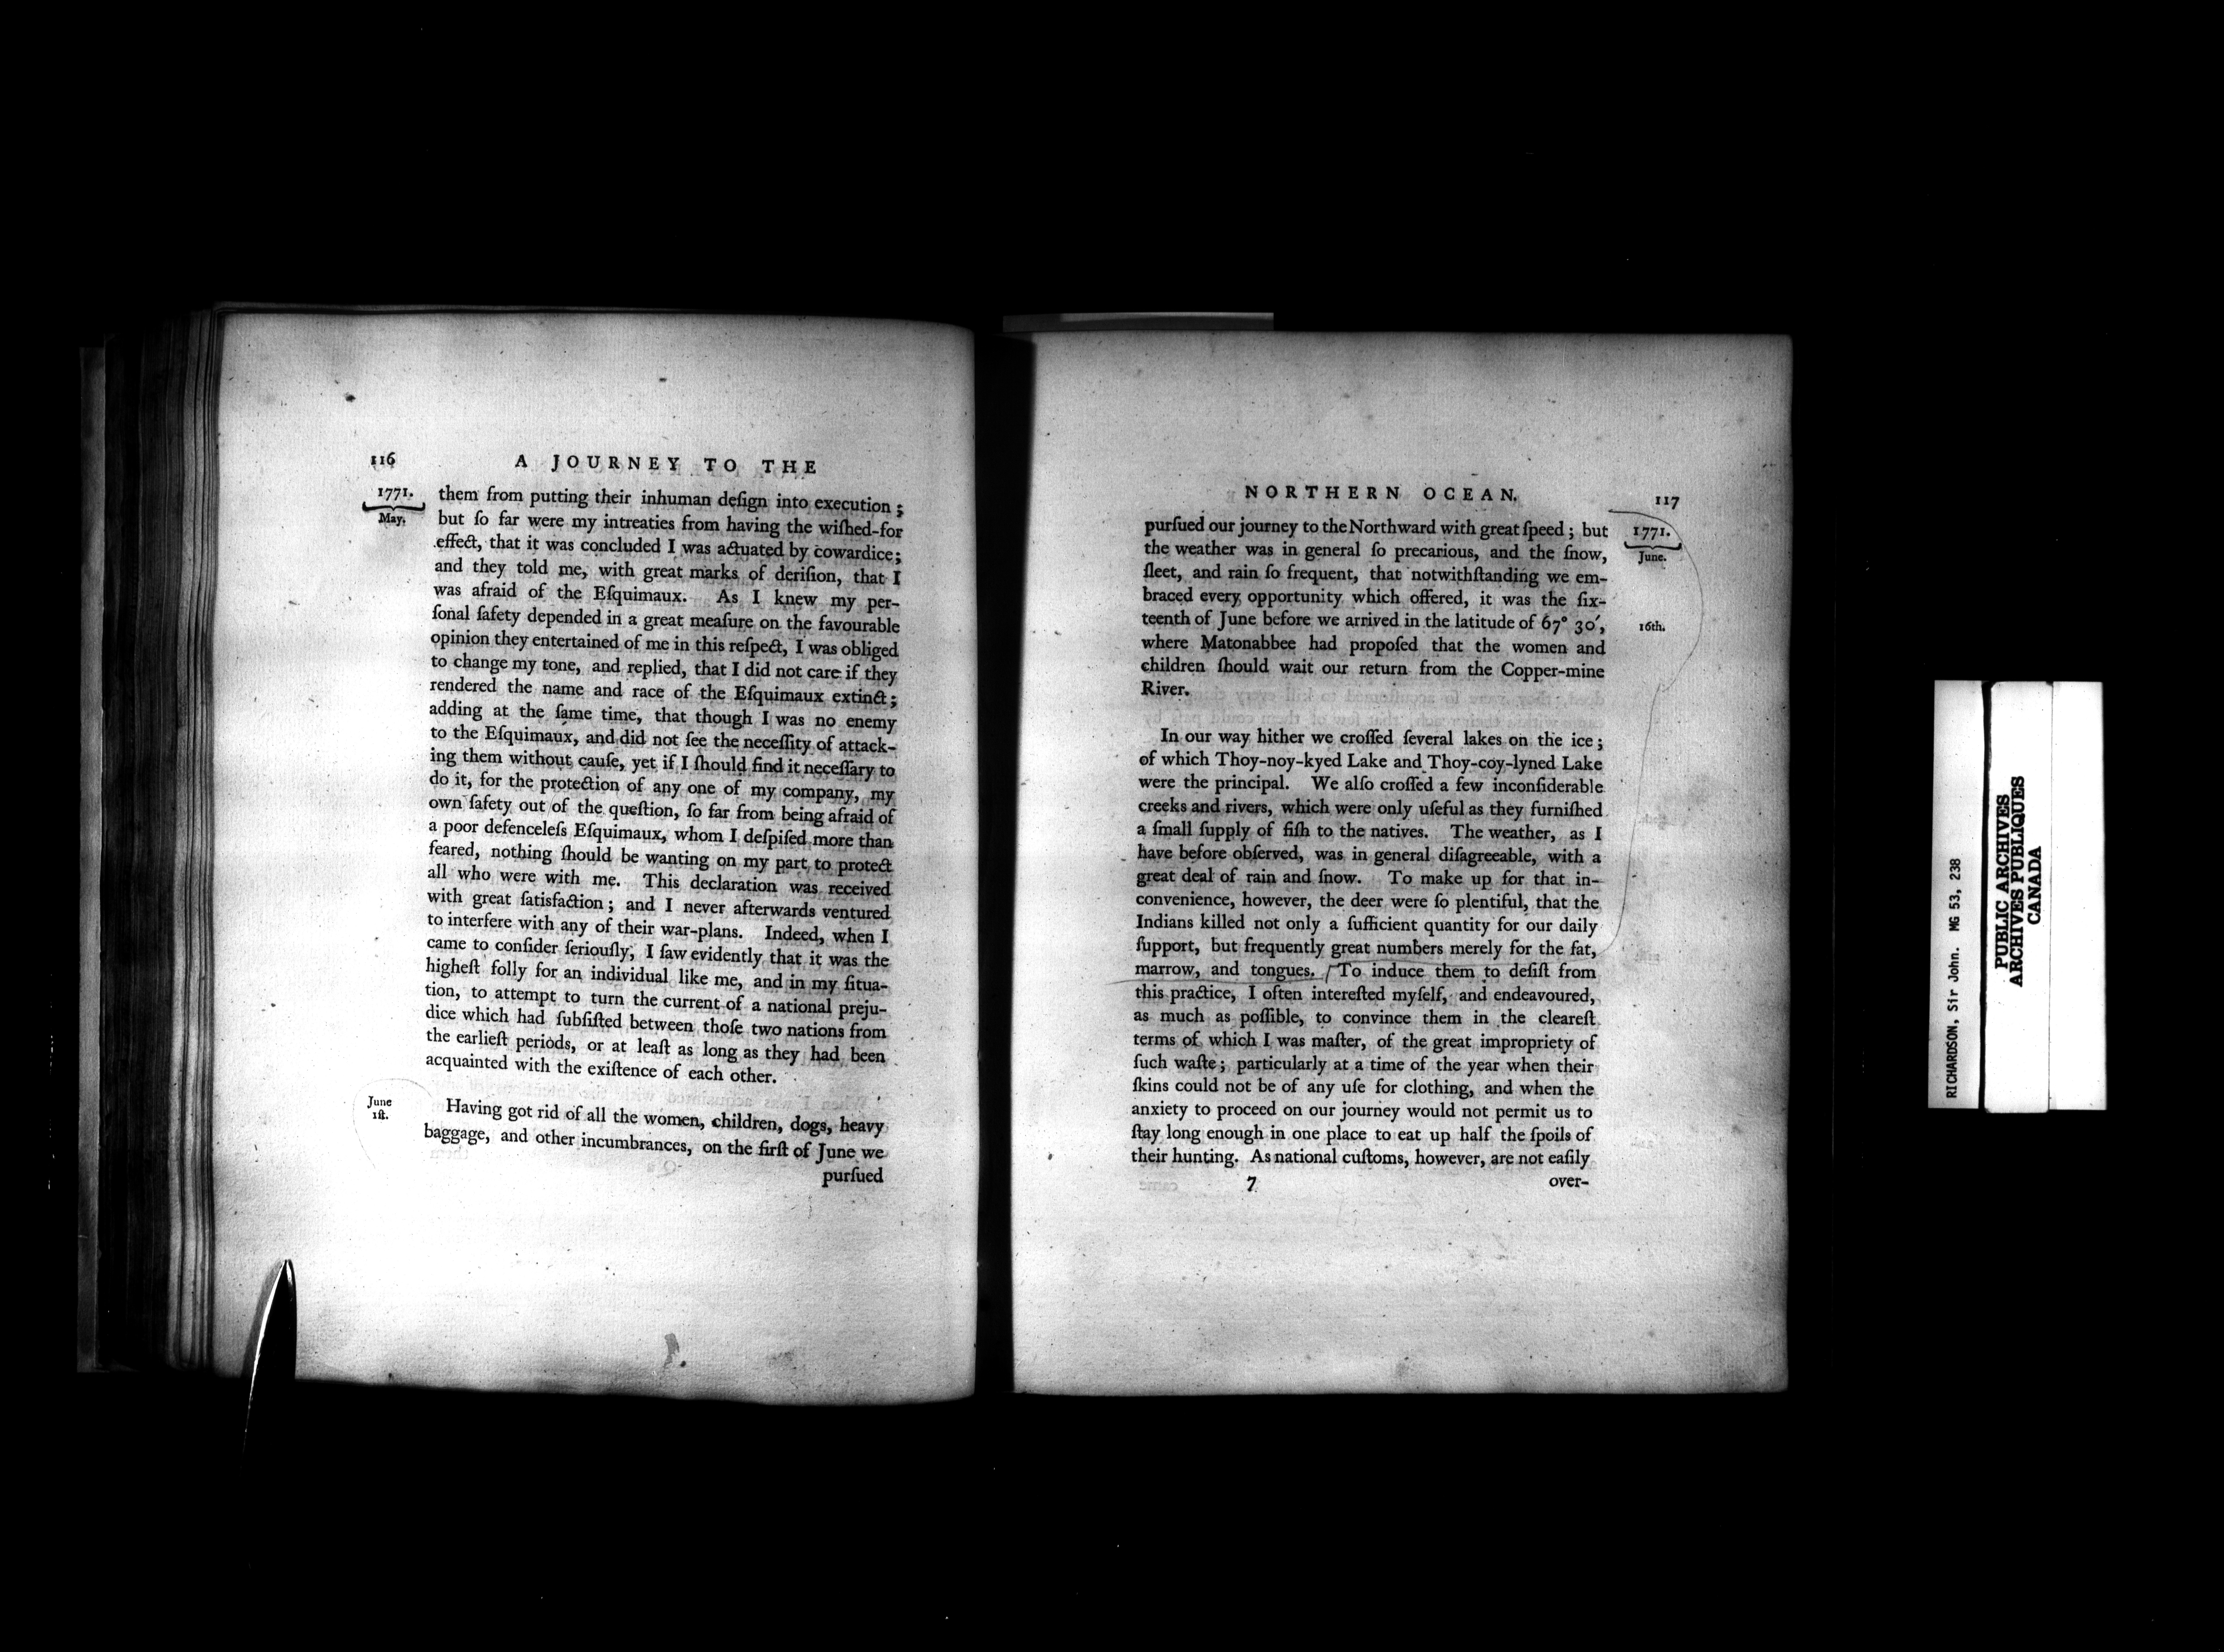 116
A JOURNEY TO THE
1771.
May.
them from putting their inhuman deſign into execution;
but ſo far were my intreaties from having the wiſhed-for
effect, that it was concluded I was actuated by cowardice;
and they told me, with great marks of deriſion, that I
was afraid of the Eſquimaux. As I knew my per-
ſonal ſafety depended in a great meaſure on the favourable
opinion they entertained of me in this reſpect, I was obliged
to change my tone, and replied, that I did not care if they
rendered the name and race of the Eſquimaux extinct;
adding at the ſame time, that though I was no enemy
to the Eſquimaux, and did not ſee the neceſſity of attack-
ing them without cauſe, yet if I ſhould find it neceſſary to
do it, for the protection of any one of my company, my
own ſafety out of the queſtion, ſo far from being afraid of
a poor defenceleſs Eſquimaux, whom I deſpiſed more than
feared, nothing ſhould be wanting on my part to protect
all who were with me. This declaration was received
with great ſatisfaction; and I never afterwards ventured
to interfere with any of their war-plans. Indeed, when I
came to conſider ſeriouſly, I ſaw evidently that it was the
higheſt folly for an individual like me, and in my ſitua-
tion, to attempt to turn the current of a national preju-
dice which had ſubſiſted between thoſe two nations from
the earlieſt periods, or at leaſt as long as they had been
acquainted with the exiſtence of each other.
June
1ſt.
Having got rid of all the women, children, dogs, heavy
baggage, and other incumbrances, on the firſt of June we
purſued
NORTHERN OCEAN.
117
1771.
June.
purſued our journey to the Northward with great ſpeed; but
the weather was in general ſo precarious, and the ſnow,
ſleet, and rain ſo frequent, that notwithſtanding we em-
braced every opportunity which offered, it was the ſix-
teenth of June before we arrived in the latitude of 67° 30′,
16th.
where Matonabbee had propoſed that the women and
children ſhould wait our return from the Copper-mine
River.
In our way hither we croſſed ſeveral lakes on the ice;
of which Thoy-noy-kyed Lake and Thoy-coy-lyned Lake
were the principal. We alſo croſſed a few inconſiderable
creeks and rivers, which were only uſeful as they furniſhed
a ſmall ſupply of fiſh to the natives. The weather, as I
have before obſerved, was in general diſagreeable, with a
great deal of rain and ſnow. To make up for that in-
convenience, however, the deer were ſo plentiful, that the
Indians killed not only a ſufficient quantity for our daily
ſupport, but frequently great numbers merely for the fat,
marrow, and tongues. To induce them to deſiſt from
this practice, I often intereſted myſelf, and endeavoured,
as much as poſſible, to convince them in the cleareſt
terms of which I was maſter, of the great impropriety of
ſuch waſte; particularly at a time of the year when their
ſkins could not be of any uſe for clothing, and when the
anxiety to proceed on our journey would not permit us to
ſtay long enough in one place to eat up half the ſpoils of
their hunting. As national cuſtoms, however, are not eaſily
7
over-
RICHARDSON, Sir John. MG 53, 238
PUBLIC ARCHIVES
ARCHIVES PUBLIQUES
CANADA